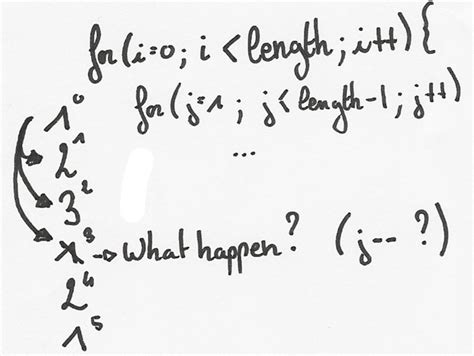 for(i=0; i < length; i++) {
for(j=1; j < length-1; j++)
...
1⁰
2¹
3²
x³ → What happen? (j-- ?)
2⁴
1⁵